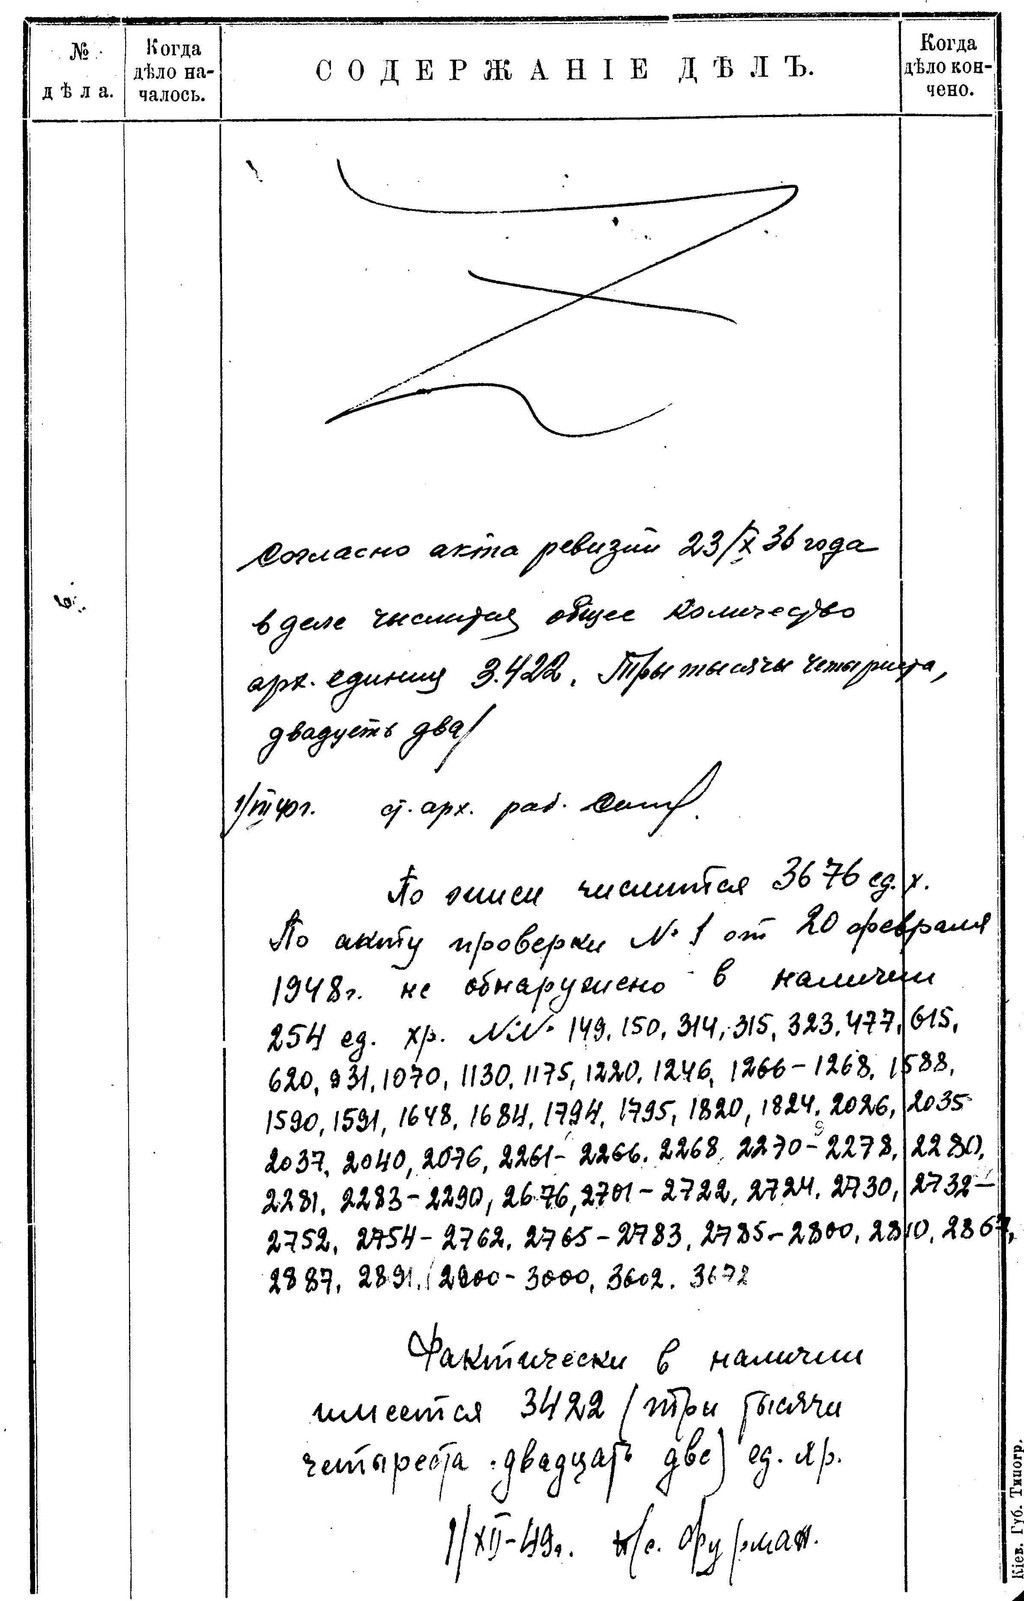 № дѣла.
Когда дѣло началось.
СОДЕРЖАНІЕ ДѢЛЪ.
Когда дѣло кончено.
Согласно акта ревизии 23/X 36 года
в деле числится общее количество
арх. единиц 3.422. Три тысячи четыриста,
двадцеть два/
1/III 40г. ст. арх. раб.
По описи числится 3676 ед. х.
По акту проверки № 1 от 20 февраля
1948г. не обнаружено в наличии
254 ед. хр. №№ 149, 150, 314, 315, 323, 477, 615,
620, 931, 1070, 1130, 1175, 1220, 1246, 1266-1268, 1588,
1590, 1591, 1648, 1684, 1794, 1795, 1820, 1824, 2026, 2035
2037, 2040, 2076, 2261-2266, 2268, 2270-2278, 2280,
2281, 2283-2290, 2676, 2701-2722, 2724, 2730, 2732-
2752, 2754-2762, 2765-2783, 2785-2800, 2810, 2867,
2887, 2891, 2900-3000, 3602, 3672
Фактически в наличии
имеется 3422 (три тысячи
четыреста двадцать две) ед. хр.
1/XII-49г. н/с. Фурман.
Кіев. Губ. Типогр.